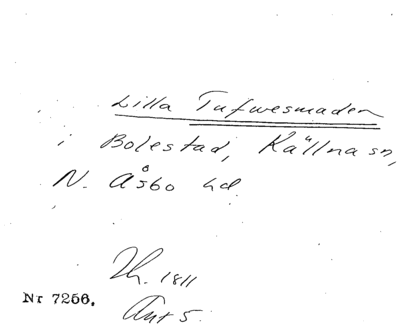 Lilla Tufwesmaden
i Bolestad, Källna sn,
N. Åsbo hd.
Th. 1811
Nr 7256.
Ant 5.